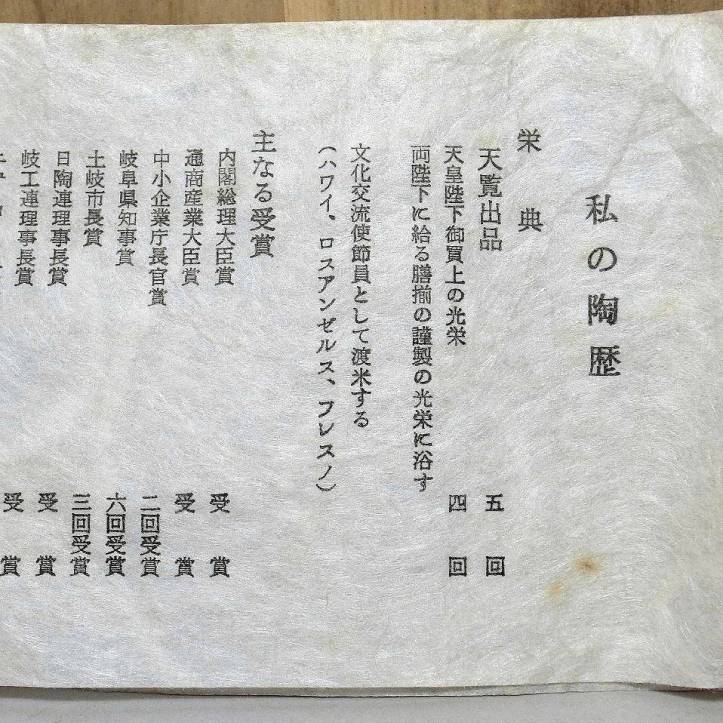 私の陶歴
栄典
天覧出品 五回
天皇陛下御買上の光栄 四回
両陛下に給る膳揃の謹製の光栄に浴す
文化交流使節員として渡米する
(ハワイ、ロスアンゼルス、フレスノ)
主なる受賞
内閣総理大臣賞 受賞
通商産業大臣賞 受賞
中小企業庁長官賞 二回受賞
岐阜県知事賞 六回受賞
土岐市長賞 三回受賞
日陶連理事長賞 受賞
岐工連理事長賞 受賞